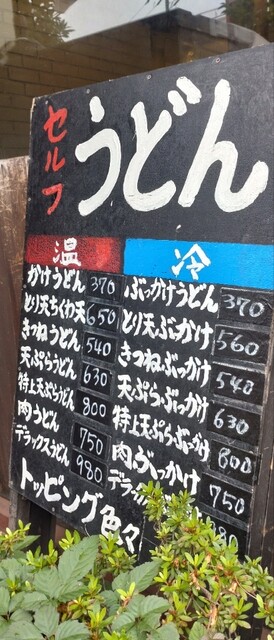 セルフ
うどん
温
かけうどん 370
とり天ちくわ天 650
きつねうどん 540
天ぷらうどん 630
特上天ぷらうどん 800
肉うどん 750
デラックスうどん 980
冷
ぶっかけうどん 370
とり天ぶっかけ 560
きつねぶっかけ 540
天ぷらぶっかけ 630
特上天ぷらぶっかけ 800
肉ぶっかけ 750
トッピング色々